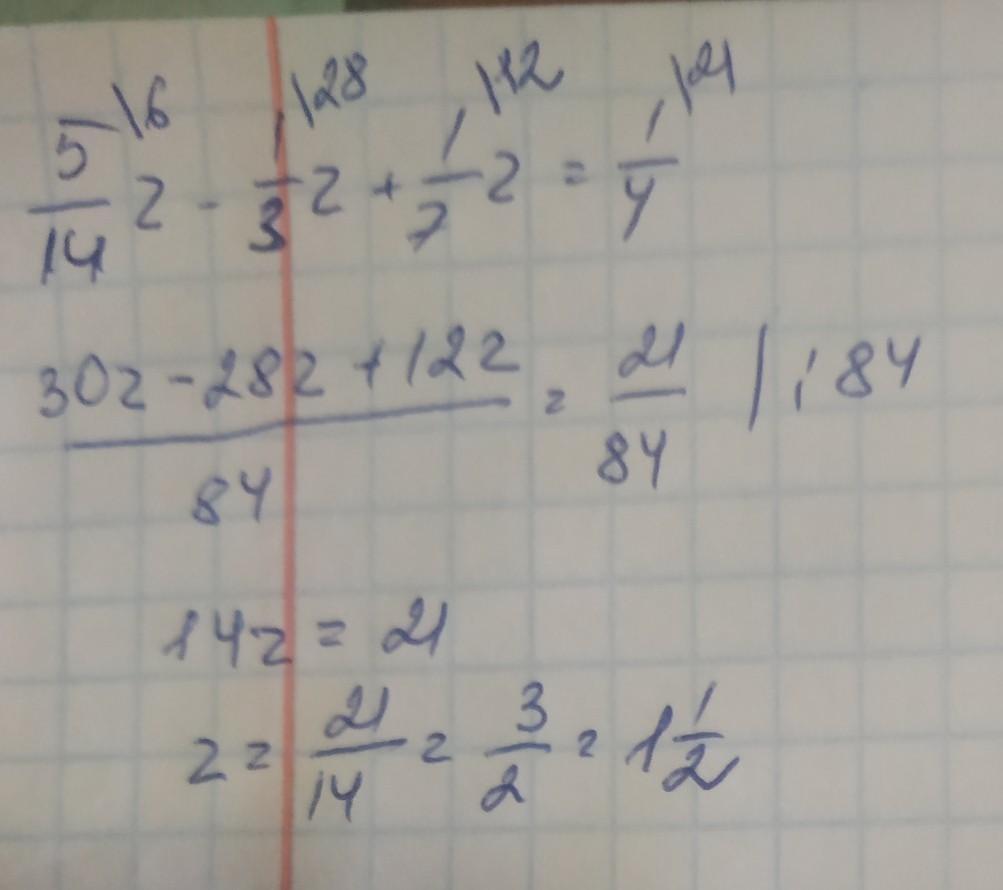 5/14 \6 z - 1/3 |28 z + 1/7 |12 z = 1/4 |21
30z - 28z + 12z / 84 = 21/84 | : 84
14z = 21
z = 21/14 = 3/2 = 1 1/2